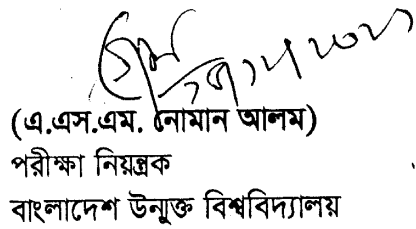 (এ.এস.এম. নোমান আলম)
পরীক্ষা নিয়ন্ত্রক
বাংলাদেশ উন্মুক্ত বিশ্ববিদ্যালয়